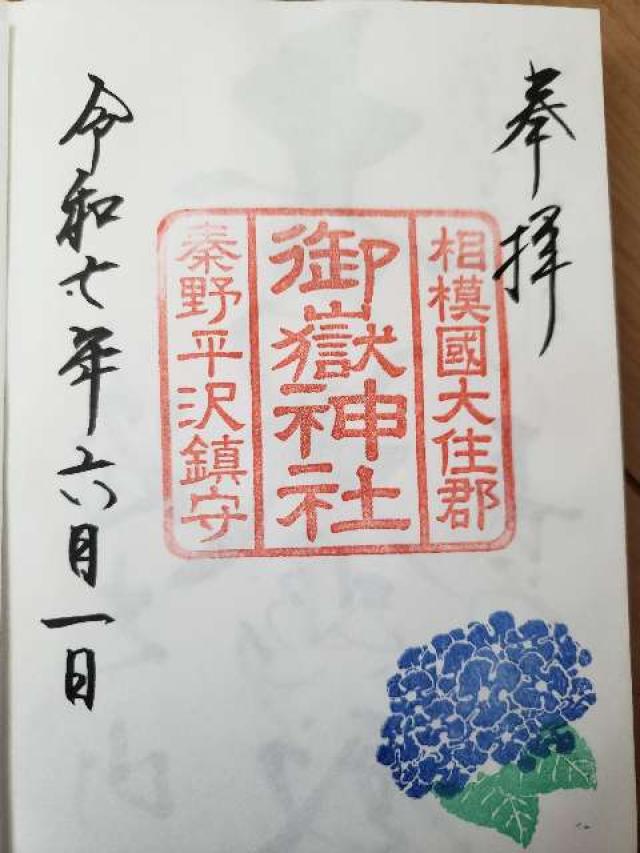 奉拝
相模國大住郡
御嶽神社
秦野平沢鎮守
令和七年六月一日